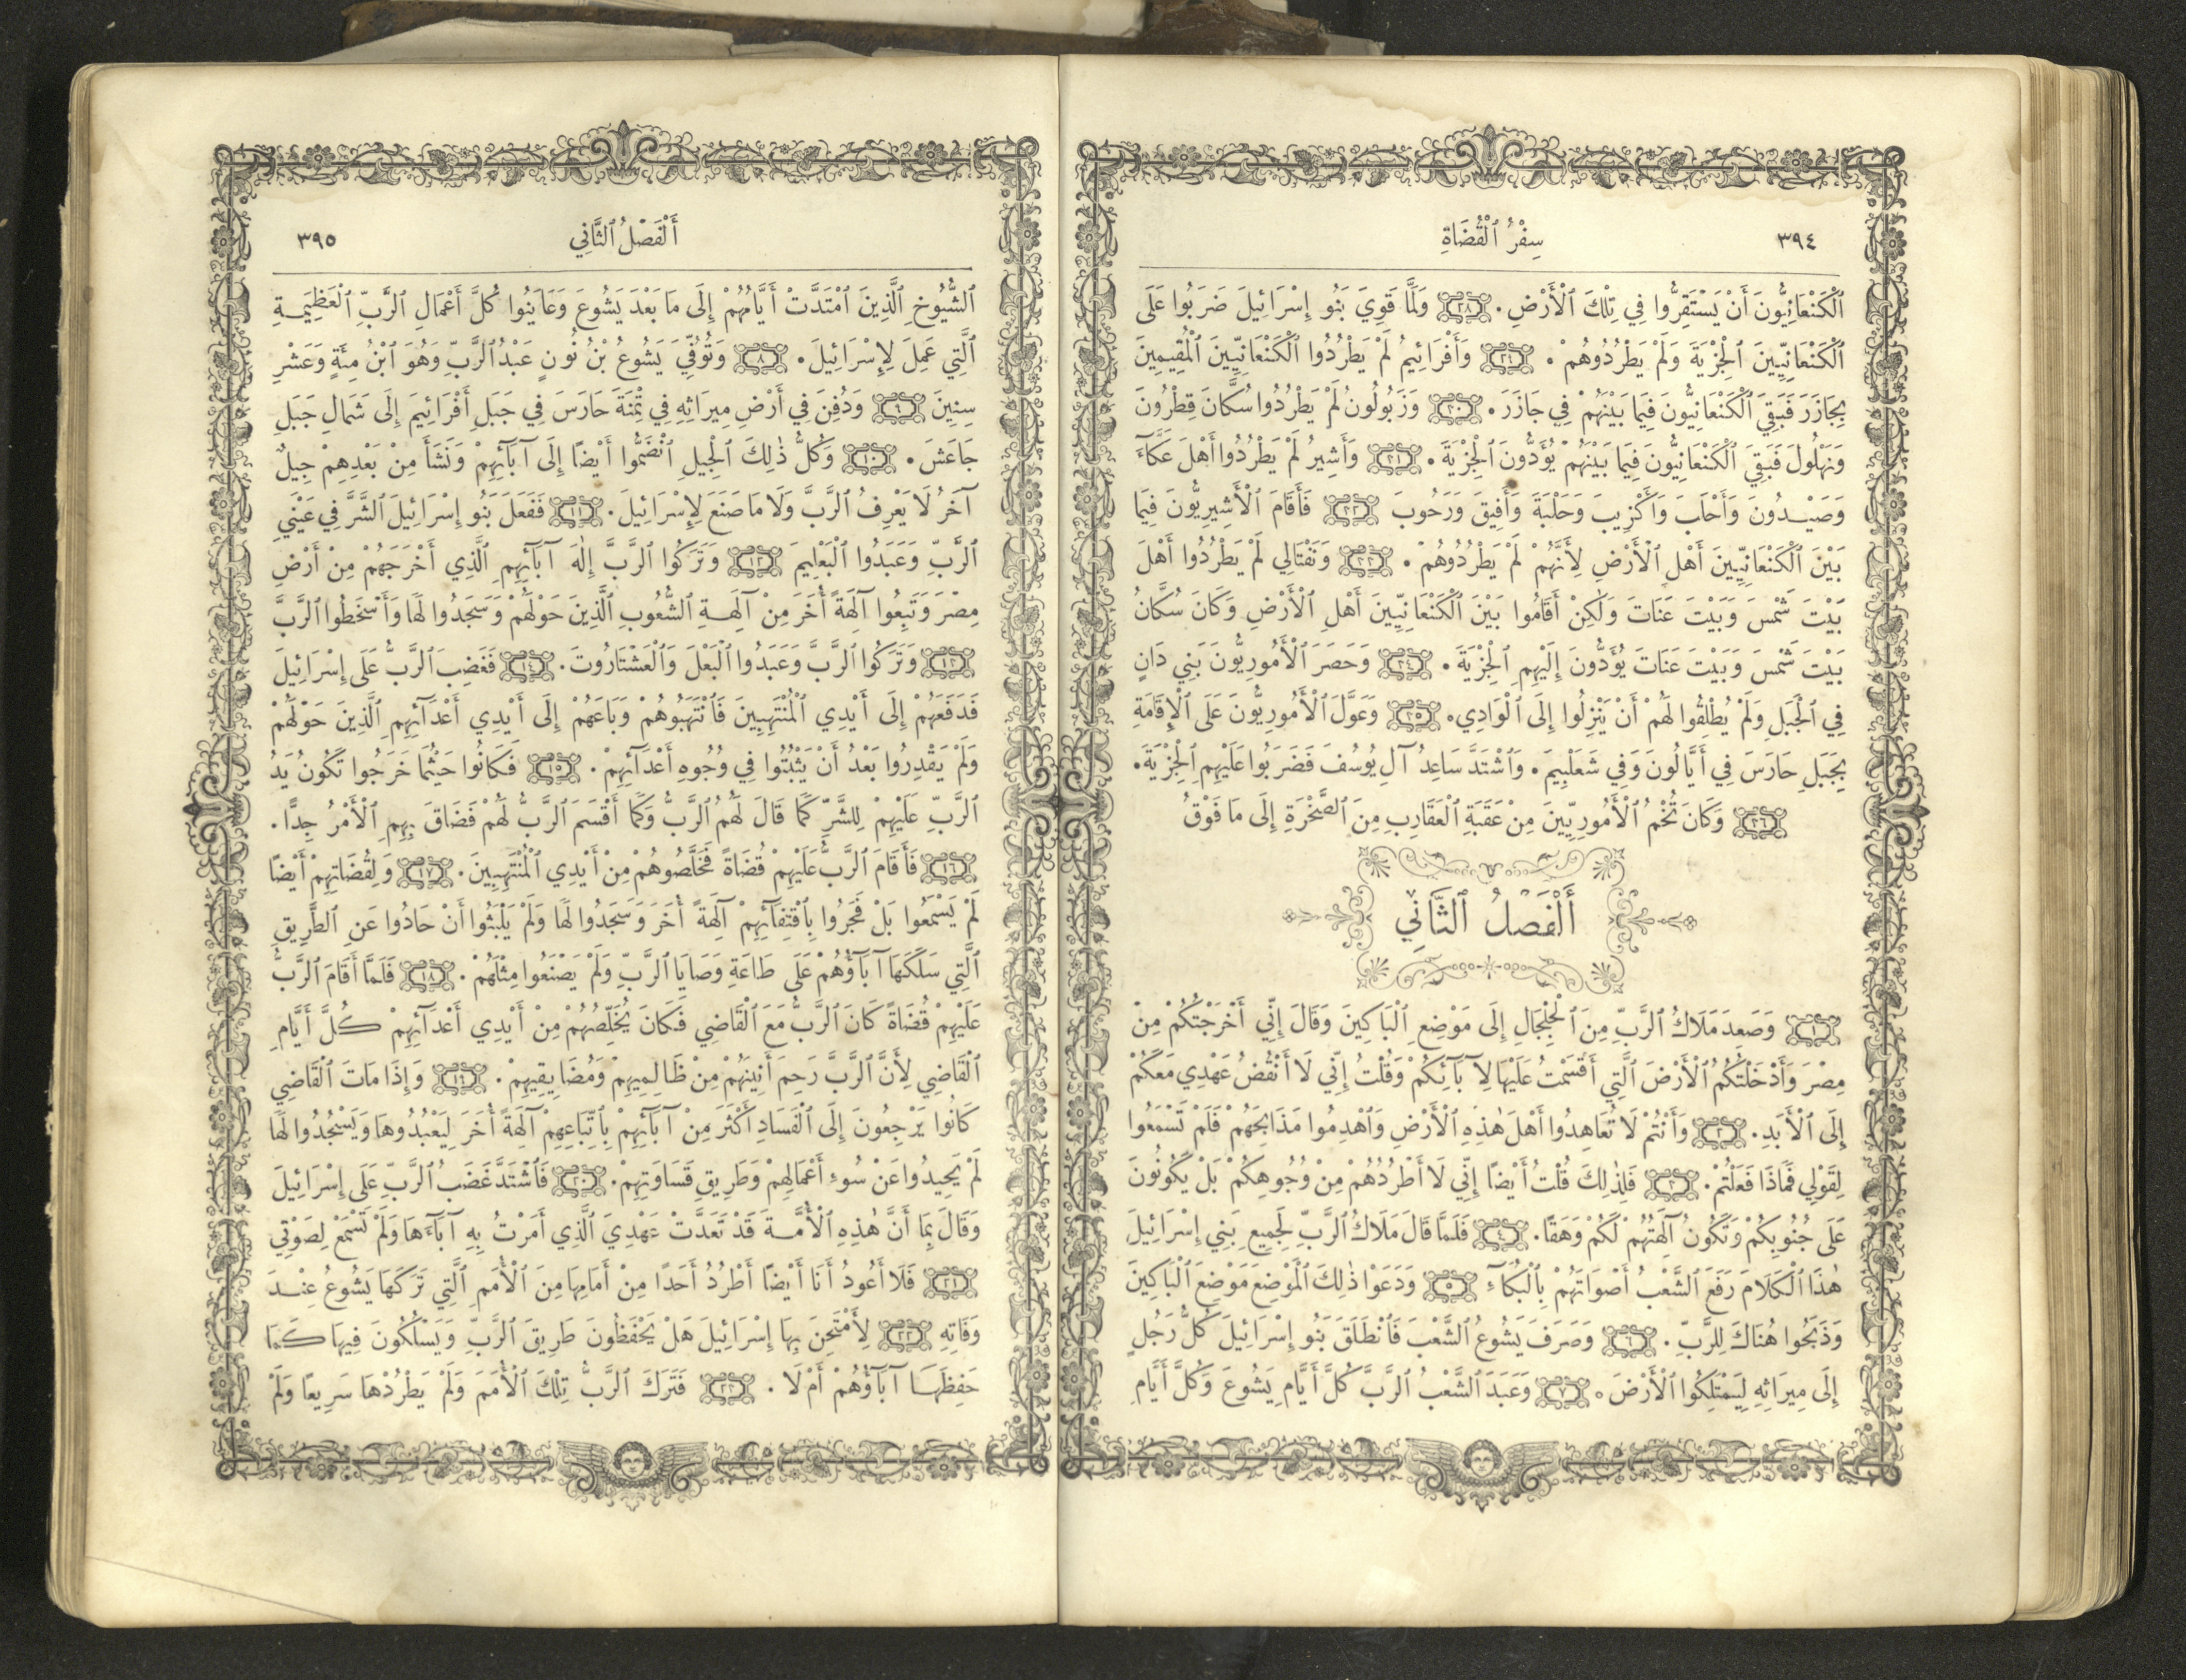 ٣٩٤
سِفْرُ ٱلْقُضَاةِ
ٱلْكَنْعَانِيُّونَ أَنْ يَسْتَقِرُّوا فِي تِلْكَ ٱلْأَرْضِ. ٢٨ وَلَمَّا قَوِيَ بَنُو إِسْرَائِيلَ ضَرَبُوا عَلَى
ٱلْكَنْعَانِيِّينَ ٱلْجِزْيَةَ وَلَمْ يَطْرُدُوهُمْ. ٢٩ وَأَفْرَائِيمُ لَمْ يَطْرُدُوا ٱلْكَنْعَانِيِّينَ ٱلْمُقِيمِينَ
بِجَازَرَ فَبَقِيَ ٱلْكَنْعَانِيُّونَ فِيمَا بَيْنَهُمْ فِي جَازَرَ. ٣٠ وَزَبُولُونُ لَمْ يَطْرُدُوا سُكَّانَ قِطْرُونَ
وَنَهْلُولَ فَبَقِيَ ٱلْكَنْعَانِيُّونَ فِيمَا بَيْنَهُمْ يُؤَدُّونَ ٱلْجِزْيَةَ. ٣١ وَأَشِيرُ لَمْ يَطْرُدُوا أَهْلَ عَكَّاءَ
وَصَيْدُونَ وَأَحْلَبَ وَأَكْزِيبَ وَحَلْبَةَ وَأَفِيقَ وَرَحُوبَ ٣٢ فَأَقَامَ ٱلْأَشِيرِيُّونَ فِيمَا
بَيْنَ ٱلْكَنْعَانِيِّينَ أَهْلِ ٱلْأَرْضِ لِأَنَّهُمْ لَمْ يَطْرُدُوهُمْ. ٣٣ وَنَفْتَالِي لَمْ يَطْرُدُوا أَهْلَ
بَيْتَ شَمْسَ وَبَيْتَ عَنَاتَ وَلٰكِنْ أَقَامُوا بَيْنَ ٱلْكَنْعَانِيِّينَ أَهْلِ ٱلْأَرْضِ وَكَانَ سُكَّانُ
بَيْتَ شَمْسَ وَبَيْتَ عَنَاتَ يُؤَدُّونَ إِلَيْهِمِ ٱلْجِزْيَةَ. ٣٤ وَحَصَرَ ٱلْأَمُورِيُّونَ بَنِي دَانٍ
فِي ٱلْجَبَلِ وَلَمْ يُطْلِقُوا لَهُمْ أَنْ يَنْزِلُوا إِلَى ٱلْوَادِي. ٣٥ وَعَوَّلَ ٱلْأَمُورِيُّونَ عَلَى ٱلْإِقَامَةِ
بِجَبَلِ حَارَسَ فِي أَيَّالُونَ وَفِي شَعَلْبِيمَ. وَٱشْتَدَّ سَاعِدُ آلِ يُوسُفَ فَضَرَبُوا عَلَيْهِمِ ٱلْجِزْيَةَ.
٣٦ وَكَانَ تُخْمُ ٱلْأَمُورِيِّينَ مِنْ عَقَبَةِ ٱلْعَقَارِبِ مِنَ ٱلصَّخْرَةِ إِلَى مَا فَوْقُ
أَلْفَصْلُ ٱلثَّانِي
١ وَصَعِدَ مَلَاكُ ٱلرَّبِّ مِنَ ٱلْجِلْجَالِ إِلَى مَوْضِعِ ٱلْبَاكِينَ وَقَالَ إِنِّي أَخْرَجْتُكُمْ مِنْ
مِصْرَ وَأَدْخَلْتُكُمُ ٱلْأَرْضَ ٱلَّتِي أَقْسَمْتُ عَلَيْهَا لِآبَآئِكُمْ وَقُلْتُ إِنِّي لَا أَنْقُضُ عَهْدِي مَعَكُمْ
إِلَى ٱلْأَبَدِ. ٢ وَأَنْتُمْ لَا تُعَاهِدُوا أَهْلَ هٰذِهِ ٱلْأَرْضِ وَٱهْدِمُوا مَذَابِحَهُمْ فَلَمْ تَسْمَعُوا
لِقَوْلِي فَمَاذَا فَعَلْتُمْ. ٣ فَلِذٰلِكَ قُلْتُ أَيْضًا إِنِّي لَا أَطْرُدُهُمْ مِنْ وُجُوهِكُمْ بَلْ يَكُونُونَ
عَلَى جُنُوبِكُمْ وَتَكُونُ آلِهَتُهُمْ لَكُمْ وَهَقًا. ٤ فَلَمَّا قَالَ مَلَاكُ ٱلرَّبِّ لِجَمِيعِ بَنِي إِسْرَائِيلَ
هٰذَا ٱلْكَلَامَ رَفَعَ ٱلشَّعْبُ أَصْوَاتَهُمْ بِٱلْبُكَآءِ ٥ وَدَعَوْا ذٰلِكَ ٱلْمَوْضِعَ مَوْضِعَ ٱلْبَاكِينَ
وَذَبَحُوا هُنَاكَ لِلرَّبِّ. ٦ وَصَرَفَ يَشُوعُ ٱلشَّعْبَ فَٱنْطَلَقَ بَنُو إِسْرَائِيلَ كُلُّ رَجُلٍ
إِلَى مِيرَاثِهِ لِيَمْتَلِكُوا ٱلْأَرْضَ. ٧ وَعَبَدَ ٱلشَّعْبُ ٱلرَّبَّ كُلَّ أَيَّامِ يَشُوعَ وَكُلَّ أَيَّامِ
أَلْفَصْلُ ٱلثَّانِي
٣٩٥
ٱلشُّيُوخِ ٱلَّذِينَ ٱمْتَدَّتْ أَيَّامُهُمْ إِلَى مَا بَعْدَ يَشُوعَ وَعَايَنُوا كُلَّ أَعْمَالِ ٱلرَّبِّ ٱلْعَظِيمَةِ
ٱلَّتِي عَمِلَ لِإِسْرَائِيلَ. ٨ وَتُوُفِّيَ يَشُوعُ بْنُ نُونٍ عَبْدُ ٱلرَّبِّ وَهُوَ ٱبْنُ مِئَةٍ وَعَشْرِ
سِنِينَ ٩ وَدُفِنَ فِي أَرْضِ مِيرَاثِهِ فِي تِمْنَةَ حَارَسَ فِي جَبَلِ أَفْرَائِيمَ إِلَى شَمَالِ جَبَلِ
جَاعَشَ. ١٠ وَكُلُّ ذٰلِكَ ٱلْجِيلِ ٱنْضَمُّوا أَيْضًا إِلَى آبَآئِهِمْ وَنَشَأَ مِنْ بَعْدِهِمْ جِيلٌ
آخَرُ لَا يَعْرِفُ ٱلرَّبَّ وَلَا مَا صَنَعَ لِإِسْرَائِيلَ. ١١ فَفَعَلَ بَنُو إِسْرَائِيلَ ٱلشَّرَّ فِي عَيْنَيِ
ٱلرَّبِّ وَعَبَدُوا ٱلْبَعْلِيمَ ١٢ وَتَرَكُوا ٱلرَّبَّ إِلٰهَ آبَآئِهِمِ ٱلَّذِي أَخْرَجَهُمْ مِنْ أَرْضِ
مِصْرَ وَتَبِعُوا آلِهَةً أُخَرَ مِنْ آلِهَةِ ٱلشُّعُوبِ ٱلَّذِينَ حَوْلَهُمْ وَسَجَدُوا لَهَا وَأَسْخَطُوا ٱلرَّبَّ
١٣ وَتَرَكُوا ٱلرَّبَّ وَعَبَدُوا ٱلْبَعْلَ وَٱلْعَشْتَارُوتَ. ١٤ فَغَضِبَ ٱلرَّبُّ عَلَى إِسْرَائِيلَ
فَدَفَعَهُمْ إِلَى أَيْدِي ٱلْمُنْتَهِبِينَ فَٱنْتَهَبُوهُمْ وَبَاعَهُمْ إِلَى أَيْدِي أَعْدَآئِهِمِ ٱلَّذِينَ حَوْلَهُمْ
وَلَمْ يَقْدِرُوا بَعْدُ أَنْ يَثْبُتُوا فِي وُجُوهِ أَعْدَآئِهِمْ. ١٥ فَكَانُوا حَيْثُمَا خَرَجُوا تَكُونُ يَدُ
ٱلرَّبِّ عَلَيْهِمْ لِلشَّرِّ كَمَا قَالَ لَهُمُ ٱلرَّبُّ وَكَمَا أَقْسَمَ ٱلرَّبُّ لَهُمْ فَضَاقَ بِهِمِ ٱلْأَمْرُ جِدًّا.
١٦ فَأَقَامَ ٱلرَّبُّ عَلَيْهِمْ قُضَاةً فَخَلَّصُوهُمْ مِنْ أَيْدِي ٱلْمُنْتَهِبِينَ. ١٧ وَلِقُضَاتِهِمْ أَيْضًا
لَمْ يَسْمَعُوا بَلْ فَجَرُوا بِٱقْتِفَآئِهِمْ آلِهَةً أُخَرَ وَسَجَدُوا لَهَا وَلَمْ يَلْبَثُوا أَنْ حَادُوا عَنِ ٱلطَّرِيقِ
ٱلَّتِي سَلَكَهَا آبَآؤُهُمْ عَلَى طَاعَةِ وَصَايَا ٱلرَّبِّ وَلَمْ يَصْنَعُوا مِثْلَهُمْ. ١٨ فَلَمَّا أَقَامَ ٱلرَّبُّ
عَلَيْهِمْ قُضَاةً كَانَ ٱلرَّبُّ مَعَ ٱلْقَاضِي فَكَانَ يُخَلِّصُهُمْ مِنْ أَيْدِي أَعْدَآئِهِمْ كُلَّ أَيَّامِ
ٱلْقَاضِي لِأَنَّ ٱلرَّبَّ رَحِمَ أَنِينَهُمْ مِنْ ظَالِمِيهِمْ وَمُضَايِقِيهِمْ. ١٩ وَإِذَا مَاتَ ٱلْقَاضِي
كَانُوا يَرْجِعُونَ إِلَى ٱلْفَسَادِ أَكْثَرَ مِنْ آبَآئِهِمْ بِٱتِّبَاعِهِمْ آلِهَةً أُخَرَ لِيَعْبُدُوهَا وَيَسْجُدُوا لَهَا
لَمْ يَحِيدُوا عَنْ سُوءِ أَعْمَالِهِمْ وَطَرِيقِ قَسَاوَتِهِمْ. ٢٠ فَٱشْتَدَّ غَضَبُ ٱلرَّبِّ عَلَى إِسْرَائِيلَ
وَقَالَ بِمَا أَنَّ هٰذِهِ ٱلْأُمَّةَ قَدْ تَعَدَّتْ عَهْدِيَ ٱلَّذِي أَمَرْتُ بِهِ آبَآءَهَا وَلَمْ تَسْمَعْ لِصَوْتِي
٢١ فَلَا أَعُودُ أَنَا أَيْضًا أَطْرُدُ أَحَدًا مِنْ أَمَامِهَا مِنَ ٱلْأُمَمِ ٱلَّتِي تَرَكَهَا يَشُوعُ عِنْدَ
وَفَاتِهِ ٢٢ لِأَمْتَحِنَ بِهَا إِسْرَائِيلَ هَلْ يَحْفَظُونَ طَرِيقَ ٱلرَّبِّ وَيَسْلُكُونَ فِيهَا كَمَا
حَفِظَهَا آبَآؤُهُمْ أَمْ لَا. ٢٣ فَتَرَكَ ٱلرَّبُّ تِلْكَ ٱلْأُمَمَ وَلَمْ يَطْرُدْهَا سَرِيعًا وَلَمْ